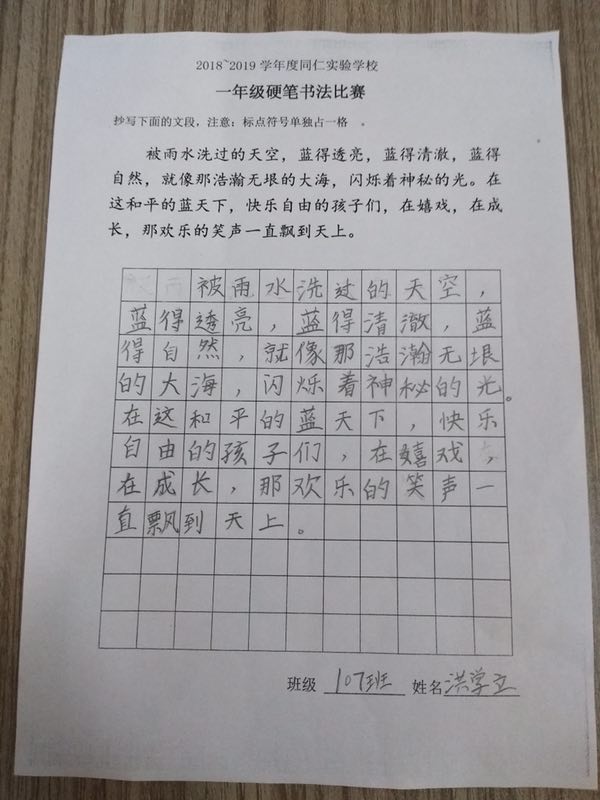 2018~2019 学年度同仁实验学校
一年级硬笔书法比赛
抄写下面的文段，注意：标点符号单独占一格 。
被雨水洗过的天空，蓝得透亮，蓝得清澈，蓝得
自然，就像那浩瀚无垠的大海，闪烁着神秘的光。在
这和平的蓝天下，快乐自由的孩子们，在嬉戏，在成
长，那欢乐的笑声一直飘到天上。
被雨水洗过的天空，
蓝得透亮，蓝得清澈，蓝
得自然，就像那浩瀚无垠
的大海，闪烁着神秘的光。
在这和平的蓝天下，快乐
自由的孩子们，在嬉戏，
在成长，那欢乐的笑声一
直飘到天上。
班级 107班 姓名洪学立